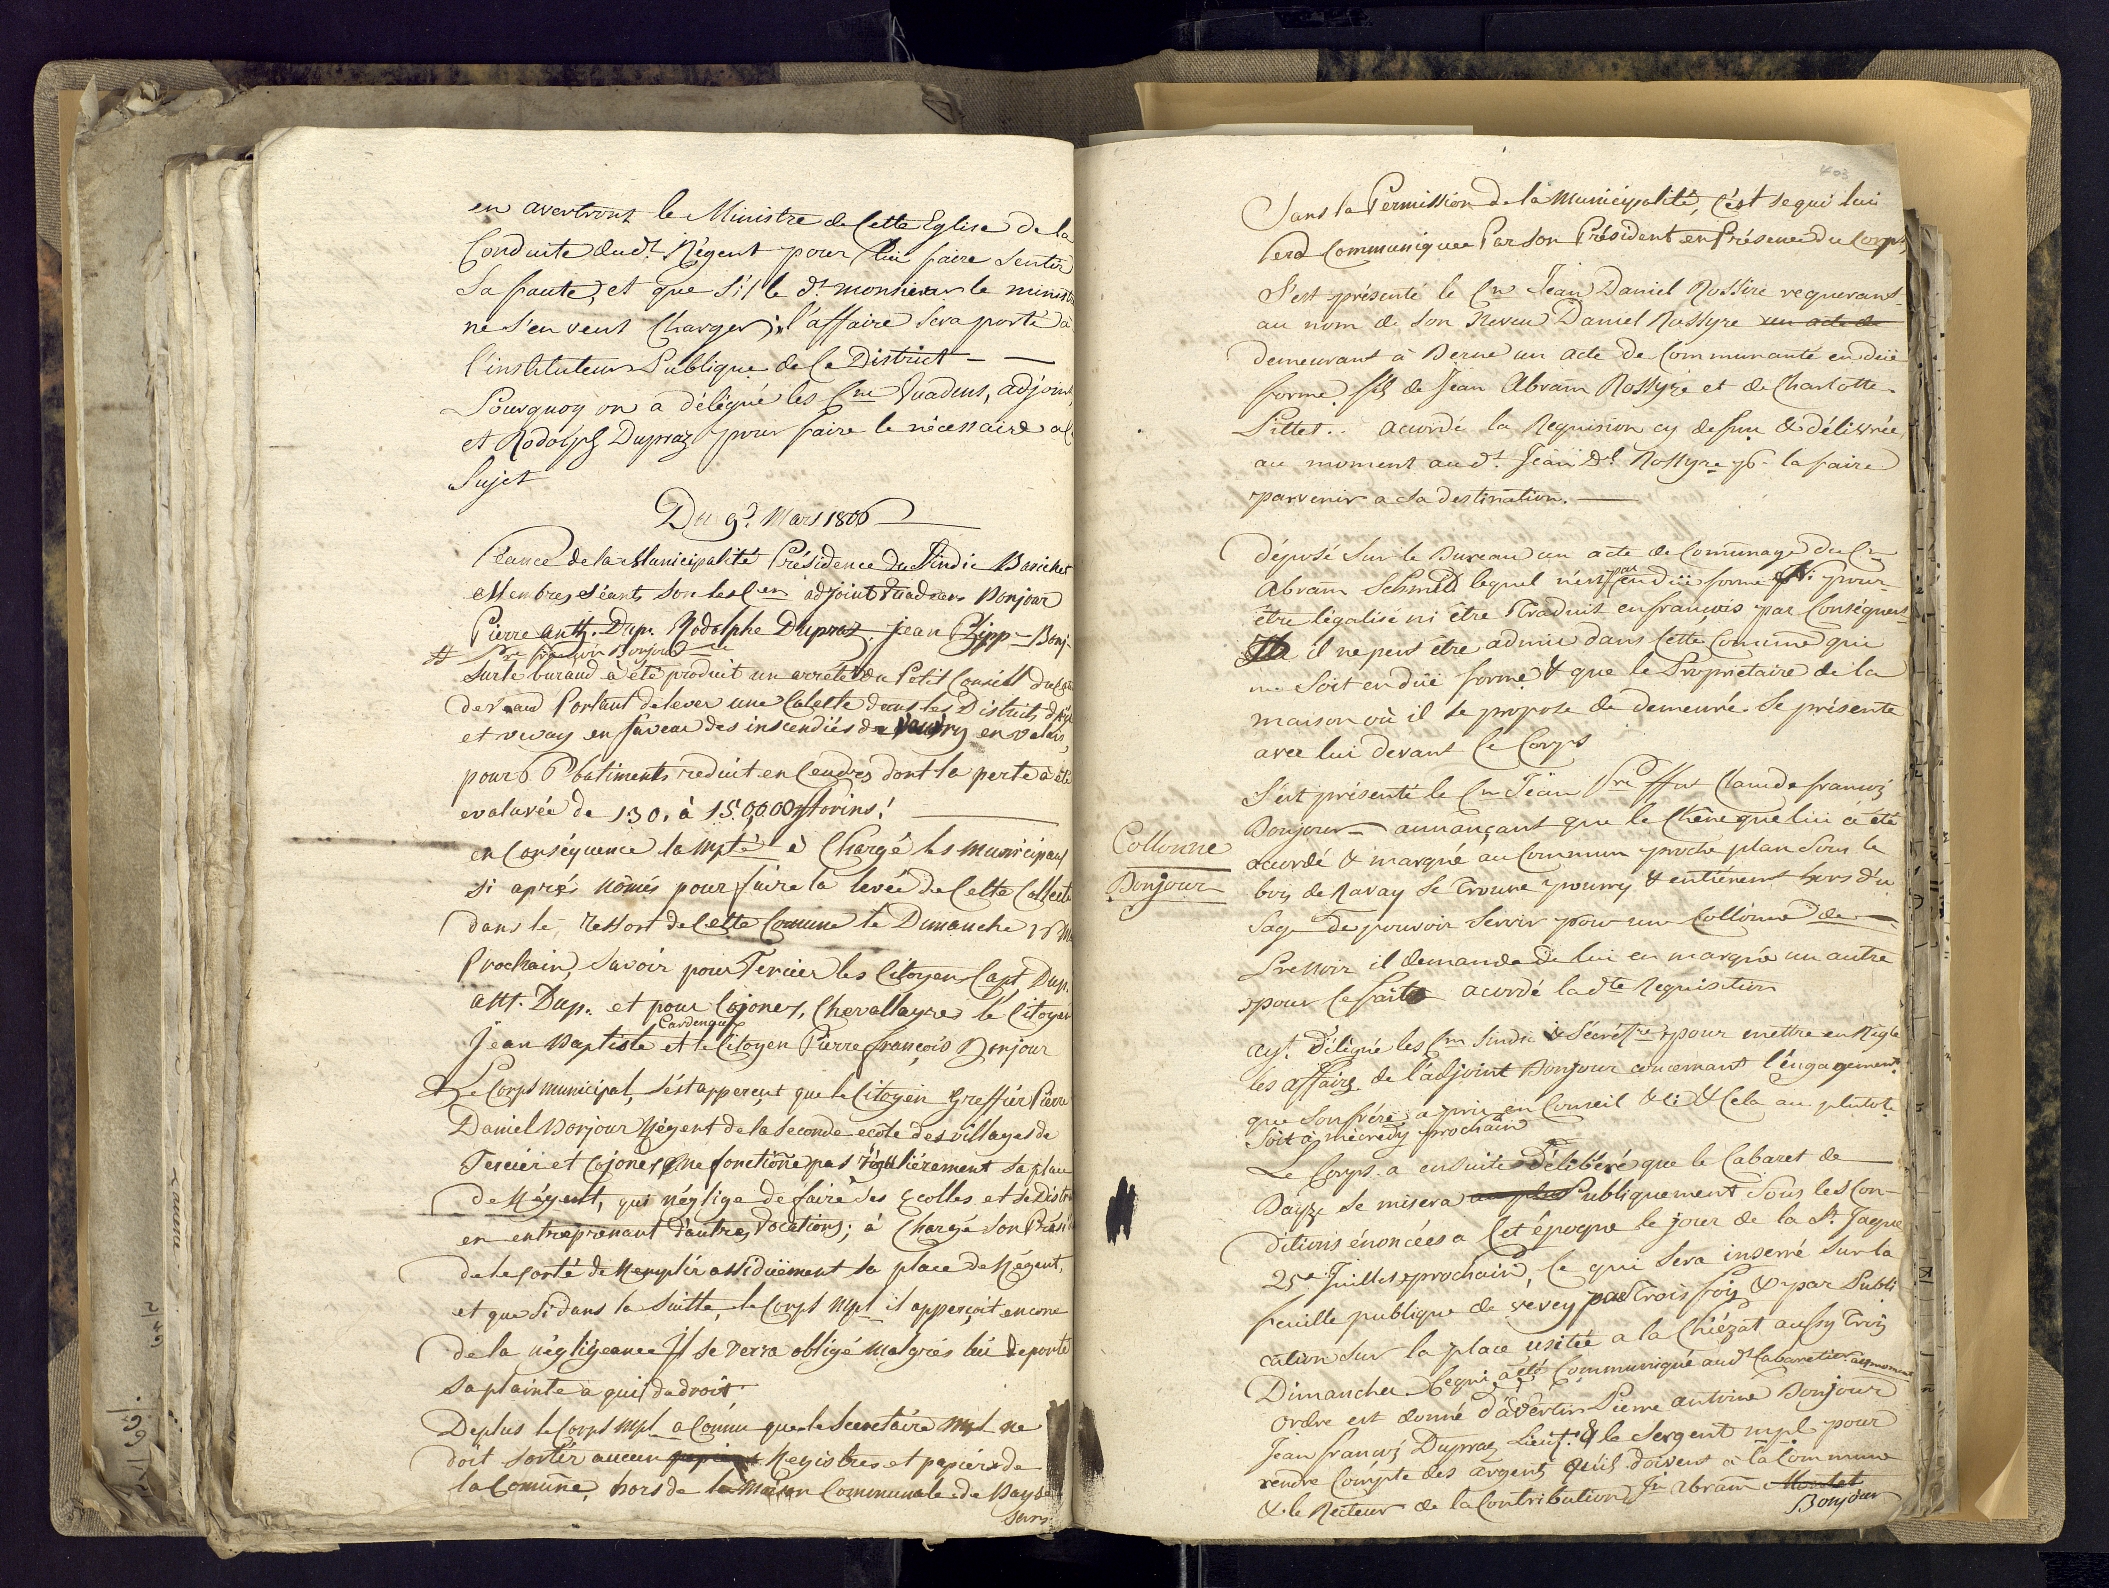 en avertront le Ministre de Cette Eglise de la
Conduite dudt. Régent pour lui faire sentir
Sa faute, et que Si le dt. monsieur le minist
ne s'en veut Charger; l'affaire Sera porté a
l'instituteur Publique de Ce District —
Pourquoy on a délégué les Cns Vuadens, adjoint,
et Rodolph Dupraz pour faire le nécessaire a C
Sujet
Du 9d. Mars 1806
Séance de la Municipalité Présidence du Sindic
Membres séants Son les Cens adjoint Vuadens Bonjour
Pierre Anth. Dup. Rodolphe Dupraz. Jean Phpp Bonj.
# Pre françois Bonjour
Sur le buraud à été produit un arrêté du Petit Conseil du
de Vaud Portant de lever une Colette dans les Districts
et vevay en faveur des insendiés de en valais,
pour 6 batiments reduit en Cendres dont la perte à été
evaluée de 130. à 150,000 florins!
en Conséquence la mpté à Chargé les municipaux
Si aprés nômés pour faire la levée de Cette Collecte
dans le, ressort de Cette Comune le Dimanche 16
Prochain, Savoir pour Tercier les Citoyens Capt. Dup.
Ant. Dup. et pour Cojonex, Chevallayres le Citoyen
Cardenaux
Jean Baptiste et le Citoyen Pierre françois Bonjour
Le Corps municipal, S'est apperçut que le Citoyen Greffier Pierre
Daniel Bonjour Régent de la Seconde ecole des villages de
Tercier et Cojonex, ne fonctiône pas régulièrement Sa place
de Régent, qui néglige de faire Ses Ecolles et se
en entreprenant d'autres Vocations; à Chargé Son Prési
de le de Remplir assiduëment Sa place de Régent,
et que Si dans la Suitte, le Corps Mpl il apperçoit encore
de la négligeance Il se verra obligé malgrés lui de porté
Sa plainte a qui de droit
De plus le Corps mpl a Connu que le Secretaire mpl ne
doit Sortir aucun papiers Registres et papiers de
la Comune, hors de la Maison Communale de Bayse
Sans
403
Sans la Permission de la Municipalité, C'ést se qui lui
Sera Communiquée Par Son Président en Présence du Corps,
S'est présenté le Cn Jean Daniel Rossire requerant
au nom de Son Neveu Daniel Rossyre un acte de
demeurant à Berne un acte de Communanté en duë
forme, fils de Jean Abram Rossyre et de Charlotte
Pittet.. acordé la Requision cy desus & délivrée
au moment audt. Jean Dl. Rossyre pr la faire
parvenir a Sa destination. —
déposé Sur le Bureau un acte de Comunage du Cn
Abram Schmid lequel n'est pas en duë forme ni pour
être légalisé ni être Traduit en françois par Conséquent
il ne peut être admis dans Cette Comune qui
ne Soit en duë forme & que le Proprietaire de la
maison où il se propose de demeuré. Se présente
avec lui devant Ce Corps
S'est présenté le Cn Jean Pre ffeu Claude françois
Bonjour — annançant que le Chêne que lui à été
Collonne
Bonjour
acordé & marqué au Commun proche plan Sous le
bois de Ravay Se Trouve pourry & entiérement hors d'u
Sage de pouvoir Servir pour une Collonne de
Pressoir il demande de lui en marqué un autre
pour Ce fait acordé la dte Requisition
ayt. délégué les Cns Sindic & Secretre pour mettre en Règle
les affaires de l'adjoint Bonjour concernant l'engagement
que Son frére a pris en Conseil & & Cela au plutot.
Soit à mécredy prochain
Le Corps. a ensuite Délibéré que le Cabaret de
Bayse Se misera Publiquement Sous les Con-
ditions énoncées a Cet époque le jour de la St. Jaque
25e Juillet prochain, Ce qui Sera inserré Sur la
feuille publique de vevey par Trois fois & par Publi
cation Sur la place usitée a la Chiézat aussy Trois
Dimanches Ce qui a été Communiqué audt Cabaretier au moment
Ordre est donné d'avertir Pierre antoine Bonjour
Jean françois Dupraz Lieut. & le Sergent mpl pour
rendre Compte des argents qu'ils doivent à la Commune
& le Recteur de la Contribution Jn Abram
Bonjour